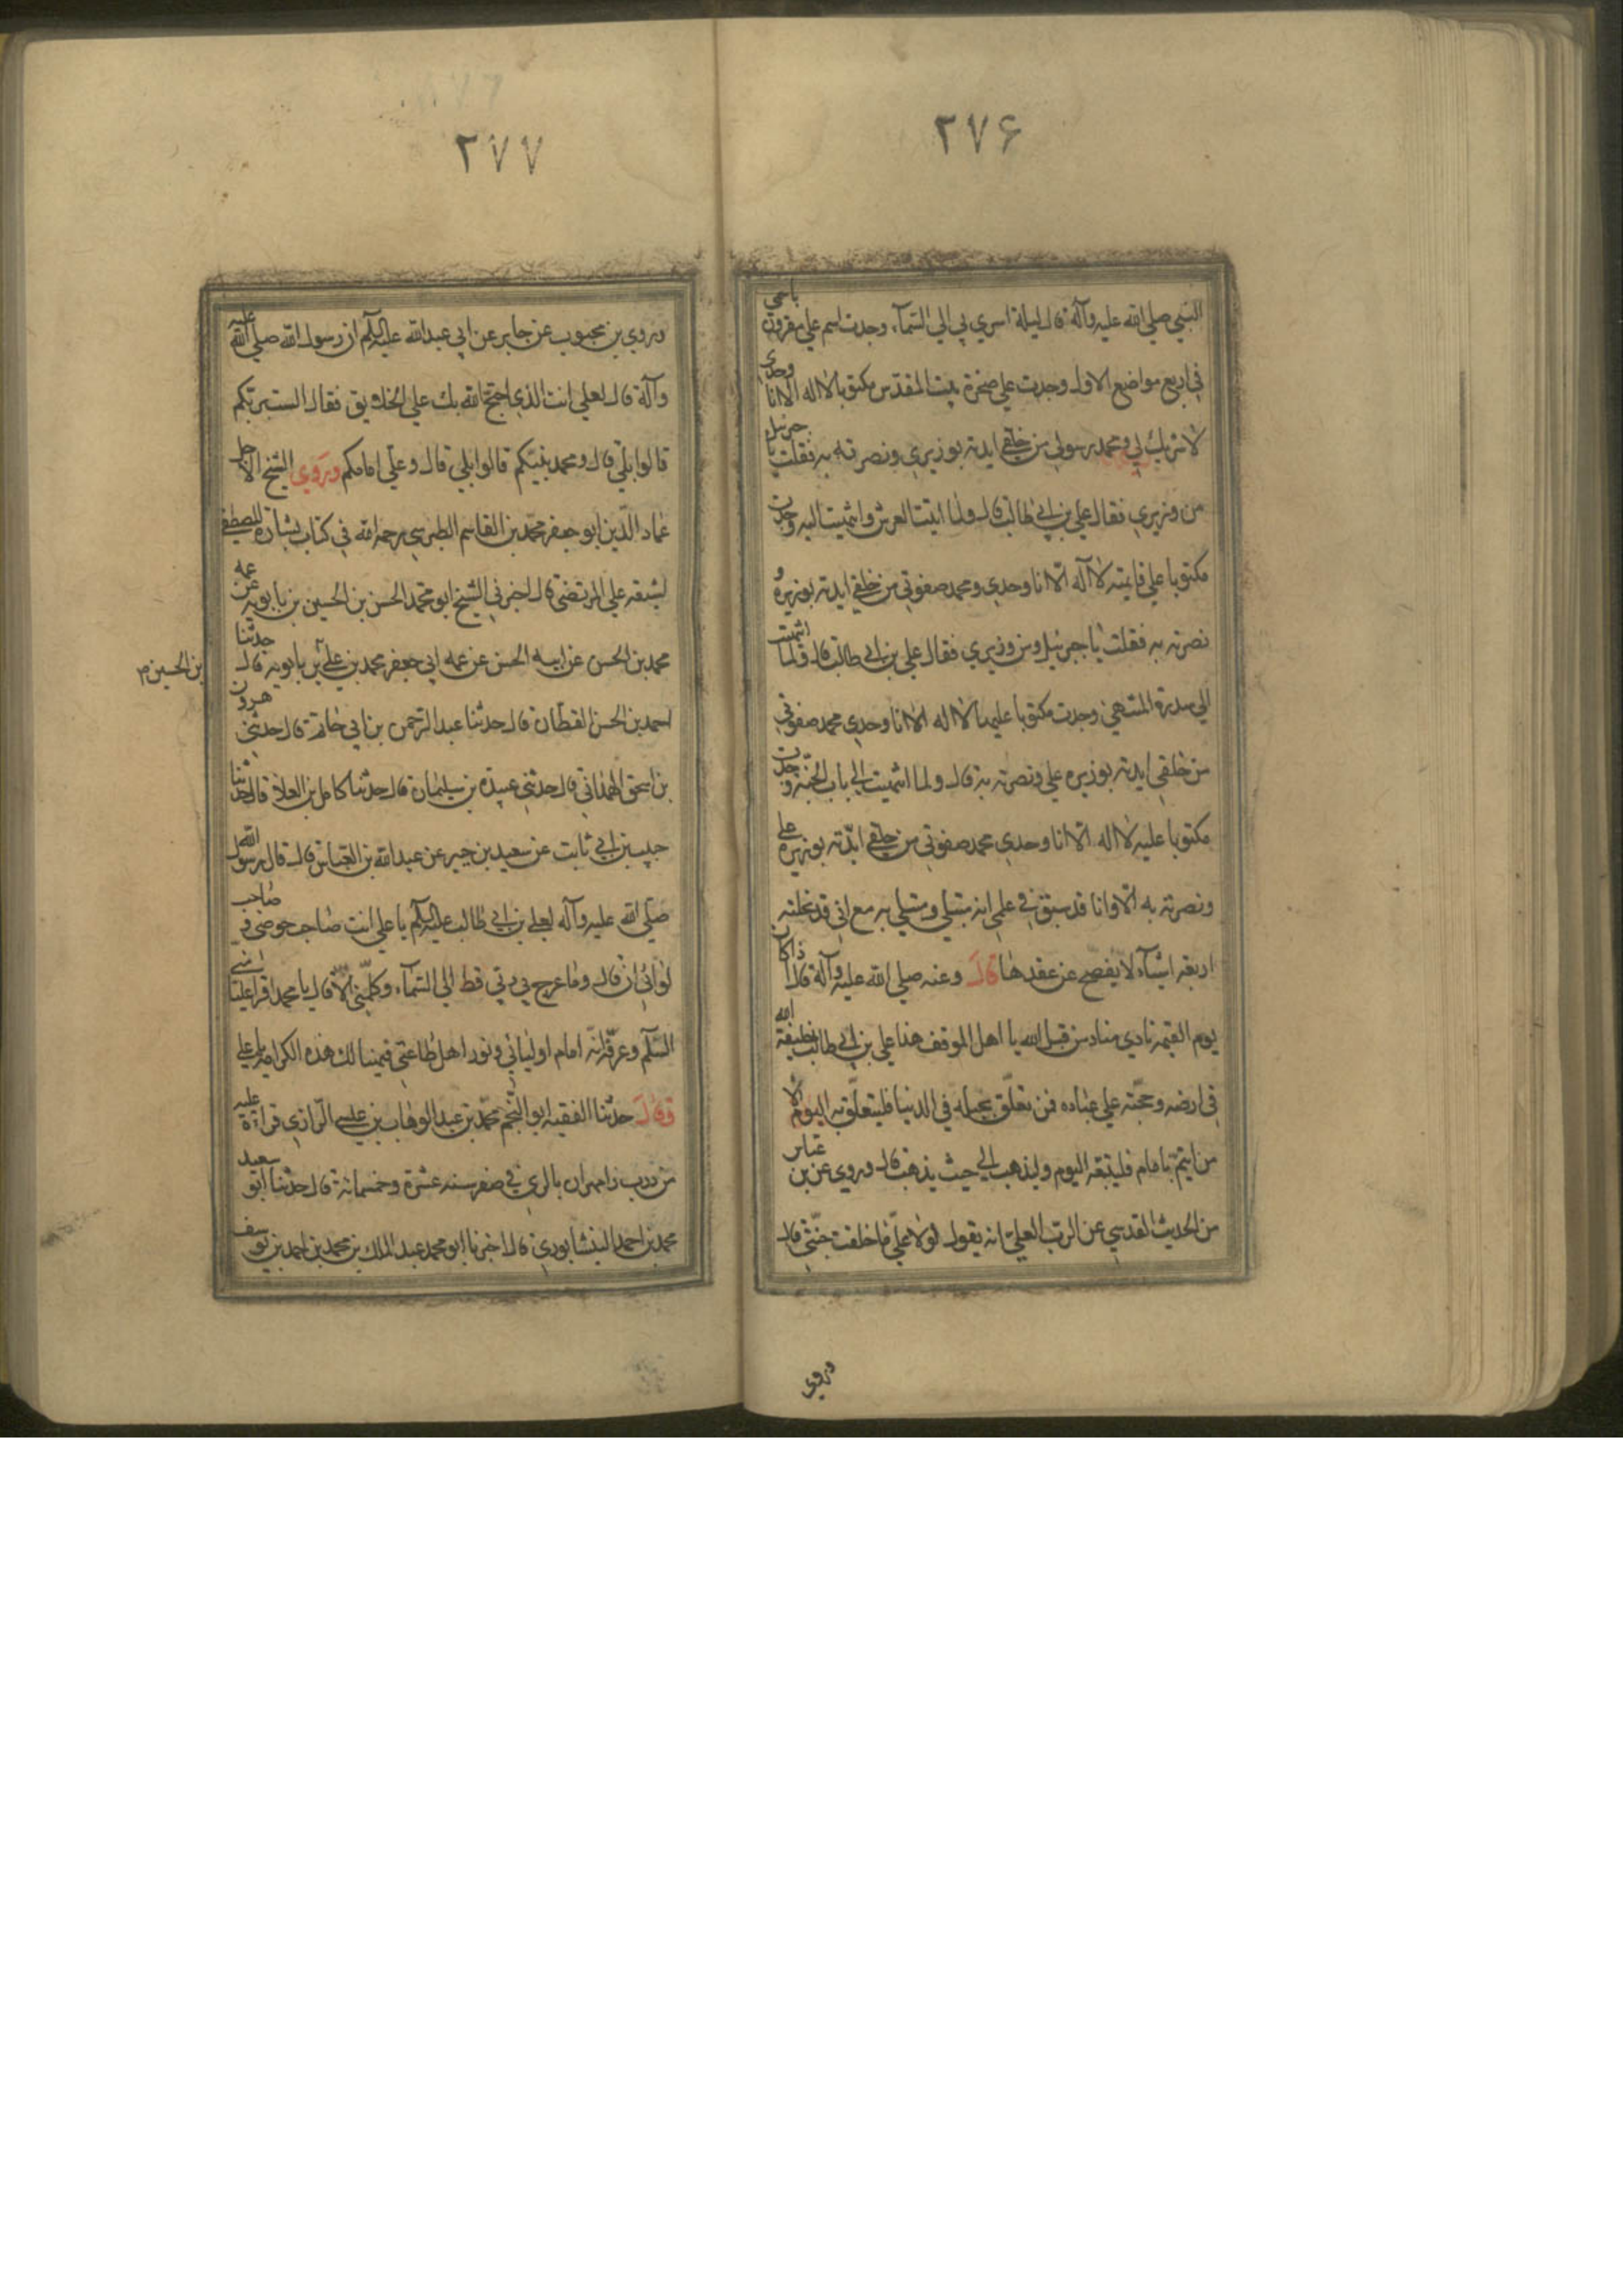 ۲۷۶
النبي صلي الله عليه وآله قال ليلة اسري بي الي السمآء وجدت اسم علي مقرون باسمي
في اربع مواضع الاول وجدت علي صخرة بيت المقدس مكتوبا لا اله الا انا وحدي
لا شريك لي ومحمد رسولي من خلقي ايدته بوزيري ونصرته به فقلت يا جبرئيل
من وزيري فقال علي بن ابي طالب قال ولما اتيت العرش وانتهيت اليه وجدت
مكتوبا علي قايمته لا اله الا انا وحدي ومحمد صفوتي من خلقي ايدته بوزيره و
نصرته به فقلت يا جبرئيل ومن وزيري فقال علي بن ابي طالب قال ولما انتهيت
الي سدرة المنتهي وجدت مكتوبا عليها لا اله الا انا وحدي محمد صفوتي
من خلقي ايدته بوزيره علي ونصرته به قال ولما انتهيت الي باب الجنة وجدت
مكتوبا عليه لا اله الا انا وحدي محمد صفوتي من خلقي ايدته بوزيره علي
ونصرته به الا وانا قد سبق في علمي انه مبتلي ومبتلي به مع اني قد نحلته
اربعة اشيآء لا يفصح عن عقدها قال وعنه صلي الله عليه وآله قال اذا كان
يوم القيمة نادي مناد من قبل الله يا اهل الموقف هذا علي بن ابي طالب خليفة الله
في ارضه وحجته علي عباده فمن تعلق بحبله في الدنيا فليتعلق به اليوم الا
من ايتم بامام فليتبعه اليوم وليذهب الي حيث يذهب قال وروي عن بن عباس
من الحديث القدسي عن الرب العلي انه يقول لولا علي ما خلقت جنتي قال
وروي
۲۷۷
وروي بن محبوب عن جابر عن ابي عبدالله عليه السلم ان رسول الله صلي الله عليه
وآله قال لعلي انت الذي احتج الله بك علي الخلايق فقال الست بربكم
قالوا بلي قال ومحمد نبيكم قالوا بلي قال وعلي امامكم وروي الشيخ الاجل
عماد الدين ابو جعفر محمد بن القاسم الطبرسي رحمه الله في كتاب بشارة المصطفي
لشيعة علي المرتضي قال اخبرني الشيخ ابو محمد الحسن بن الحسين بن بابويه عن عمه
محمد بن الحسن عن ابيه الحسن عن عمه ابي جعفر محمد بن علي بن بابويه قال حدثنا
بن الحسين م
احمد بن الحسن القطان قال حدثنا عبد الرحمن بن ابي حاتم قال حدثني هرون
بن اسحق الهمداني قال حدثني عبيدة بن سليمان قال حدثنا كامل بن العلا قال حدثنا
حبيب بن ابي ثابت عن سعيد بن جبير عن عبد الله بن العباس قال قال رسول الله
صلي الله عليه وآله لعلي بن ابي طالب عليه السلم يا علي انت صاحب حوضي وصاحب
لوائي ان قال وما عرج بي ربي قط الي السمآء وكلمني الا قال يا محمد اقرا عليا مني
السلم وعرفه انه امام اوليائي ونور اهل طاعتي فهنيئا لك هذه الكرامة يا علي
وقال حدثنا الفقيه ابو النجم محمد بن عبد الوهاب بن عيسي الرازي قراءة عليه
من درب زامهران بالري في صفر سنة عشرة وخمسمائة قال حدثنا ابو سعيد
محمد بن احمد النيشابوري قال اخبرنا ابو محمد عبد الملك بن محمد بن احمد بن يوسف